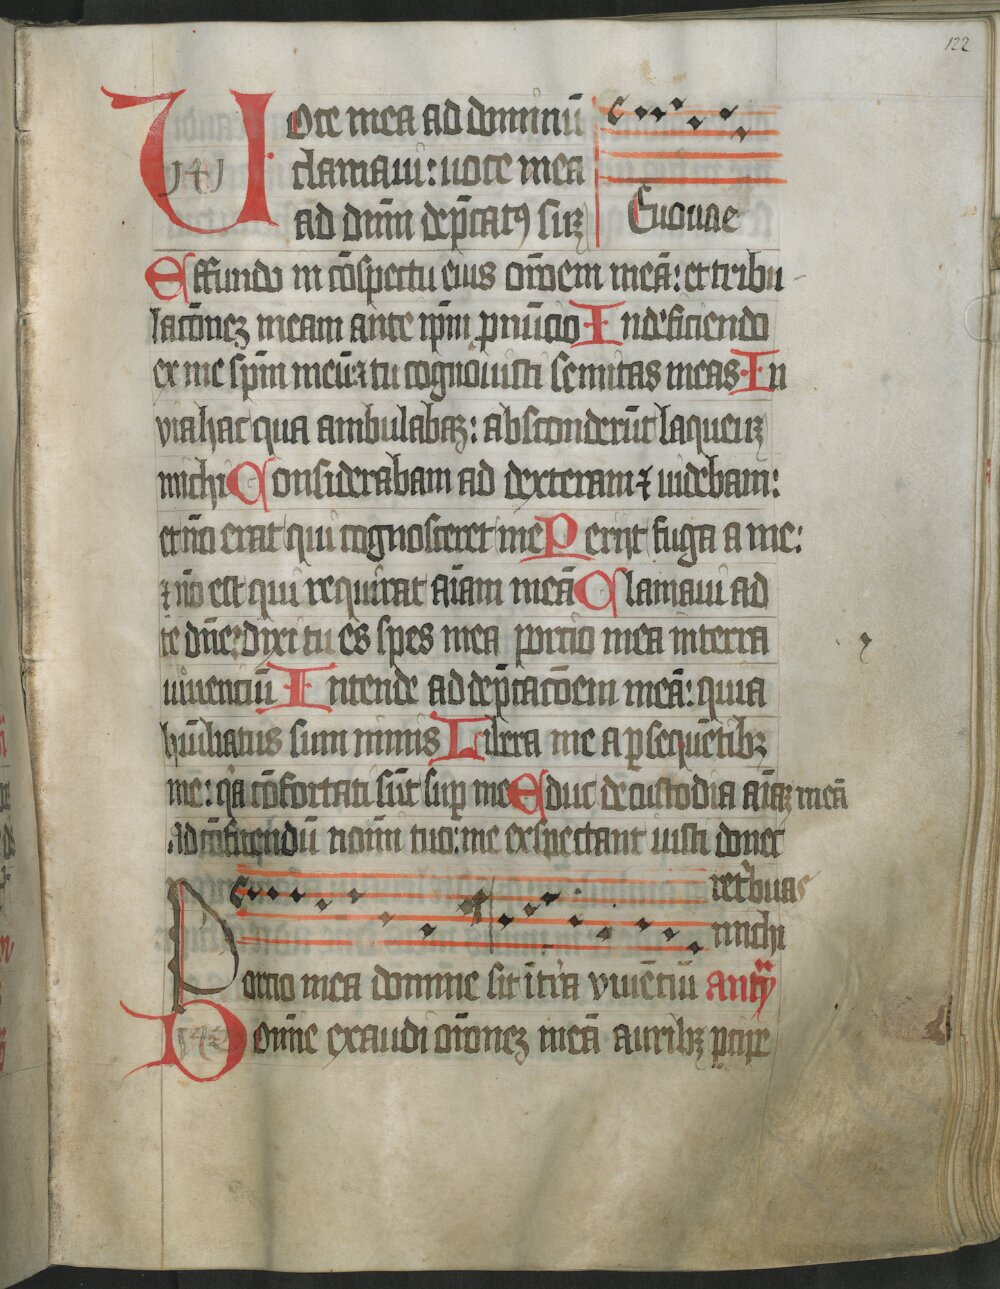 122
Uoce mea ad dominū
clamaui: uoce mea
ad dnm dep̄catꝰ suꝫ
Euouae
141
Effundo in cōspectu eius orōem meā: et tribu
latōneꝫ meam ante ip̄m ꝓnūcio In deficiendo
ex me sp̄m meū ⁊ tu cognouisti semitas meas In
via hac qua ambulabaꝫ: absconderūt laqueuꝫ
michi Considerabam ad dexteram ⁊ uidebam:
et nō erat qui cognosceret me Perijt fuga a me:
⁊ nō est qui requirat aīam meā Clamaui ad
te dn̄e: dixi tu es spes mea portio mea in terra
uiuenciū Intende ad dep̄catōem meā: quia
hūiliatus sum nimis Libera me a ꝑsequētibꝫ
me: qa cōfortati sūt suꝑ me Educ de custodia aīaꝫ meā
ad cōfitendū nomī tuo: me exspectant iusti donec
ret͛buas
michi
Portio mea domine sit ī tr̄a viuētiū an̄
142
Domīe exaudi orōneꝫ meā auribꝫ ꝑcipe